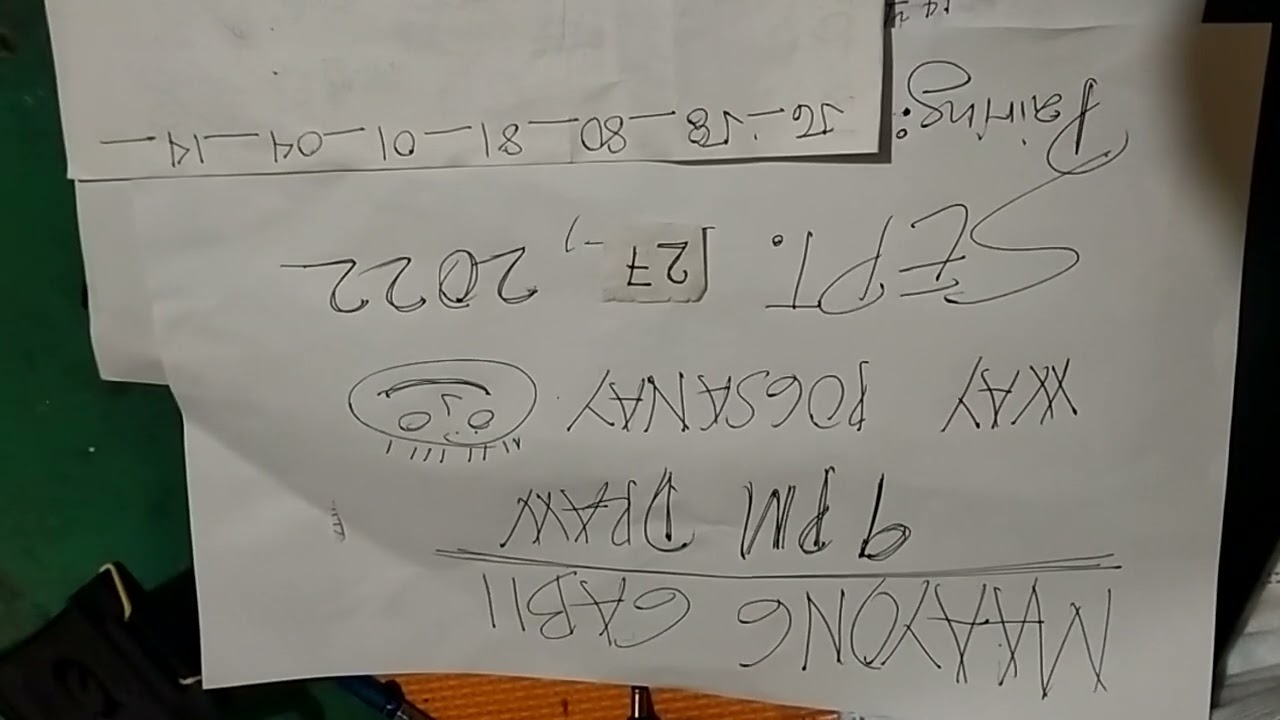 MAAYONG GABII
9 PM DRAW
WAY POGSANAY
SEPT. [27-), 2022
Pairing: 56-58-80-81-01-04-14-